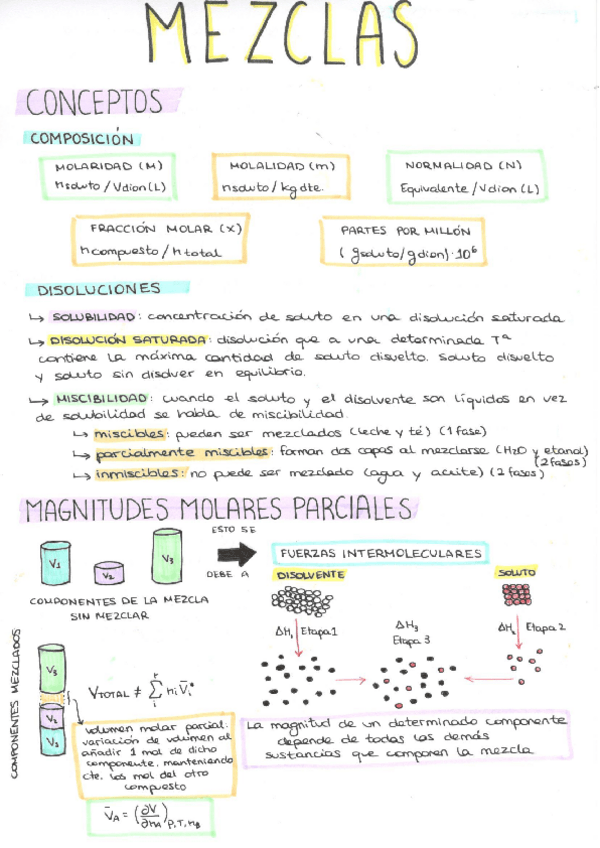 MEZCLAS
CONCEPTOS
COMPOSICIÓN
MOLARIDAD (M)
nsoluto / Vdion (L)
MOLALIDAD (m)
nsoluto / kg dte.
NORMALIDAD (N)
Equivalente / Vdion (L)
FRACCIÓN MOLAR (X)
ncompuesto / ntotal
PARTES POR MILLÓN
( gsoluto / gdion) · 10⁶
DISOLUCIONES
↳ SOLUBILIDAD: concentración de soluto en una disolución saturada
↳ DISOLUCIÓN SATURADA: disolución que a una determinada Tª
contiene la máxima cantidad de soluto disuelto. Soluto disuelto
y soluto sin disolver en equilibrio.
↳ MISCIBILIDAD: cuando el soluto y el disolvente son líquidos en vez
de solubilidad se habla de miscibilidad.
↳ miscibles: pueden ser mezclados (leche y té) (1 fase)
↳ parcialmente miscibles: forman dos capas al mezclarse (H2O y etanol)
(2 fases)
↳ inmiscibles: no puede ser mezclado (agua y aceite) (2 fases)
MAGNITUDES MOLARES PARCIALES
V1
V2
V3
COMPONENTES DE LA MEZCLA
SIN MEZCLAR
ESTO SE
DEBE A
FUERZAS INTERMOLECULARES
DISOLVENTE
SOLUTO
ΔH1 Etapa 1
ΔH3
Etapa 3
ΔH2 Etapa 2
COMPONENTES MEZCLADOS
V3
V2
V1
VTOTAL ≠ Σ ni V̄i*
volumen molar parcial:
variación de volumen al
añadir 1 mol de dicho
componente, manteniendo
cte. los mol del otro
compuesto
V̄A = (∂V/∂nA) P,T,nB
La magnitud de un determinado componente
depende de todas las demás
sustancias que componen la mezcla